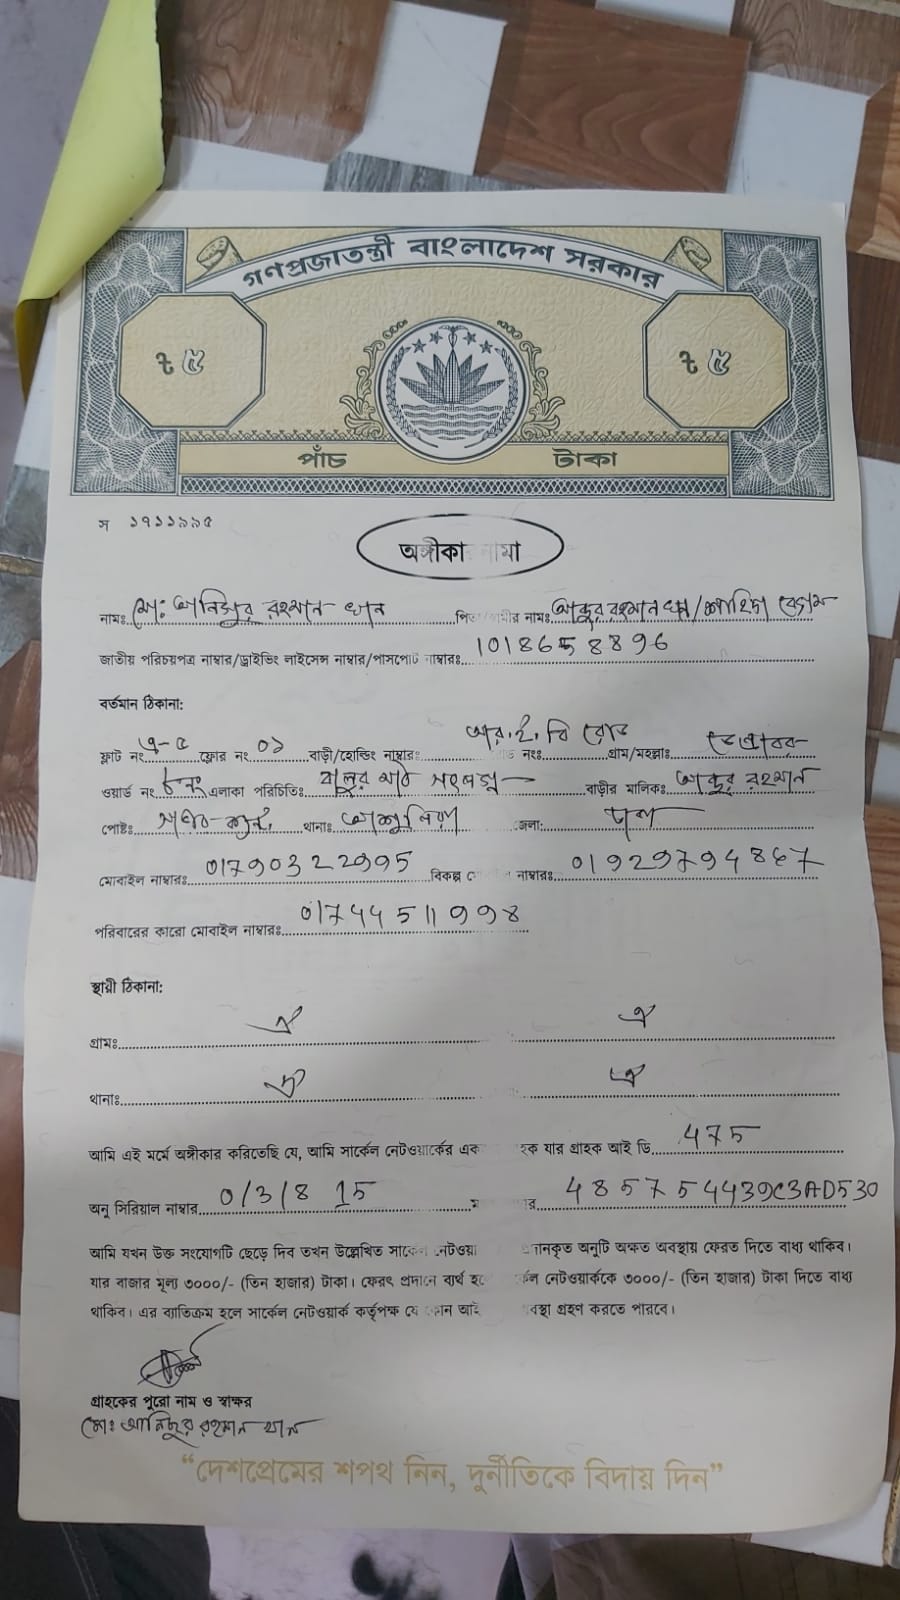 গণপ্রজাতন্ত্রী বাংলাদেশ সরকার
৳ ৫ ৳ ৫
পাঁচ টাকা
স ১৭১১৯৯৫
অঙ্গীকারনামা
নামঃ মোঃ আনিছুর রহমান খান পিতা/স্বামীর নামঃ আব্দুর রহমান খান/শাহিদা বেগম
জাতীয় পরিচয়পত্র নাম্বার/ড্রাইভিং লাইসেন্স নাম্বার/পাসপোর্ট নাম্বারঃ 1018658896
বর্তমান ঠিকানা:
ফ্লাট নং এ-৫ ফ্লোর নং ০১ বাড়ী/হোল্ডিং নাম্বারঃ আর.ই.বি রোড নংঃ গ্রাম/মহল্লাঃ
ওয়ার্ড নং ৮নং এলাকা পরিচিতিঃ বালুর মাঠ সংলগ্ন বাড়ীর মালিকঃ আব্দুর রহমান
পোষ্টঃ থানাঃ আশুলিয়া জেলা: ঢাকা
মোবাইল নাম্বারঃ 01790322995 বিকল্প নাম্বারঃ 01929794867
পরিবারের কারো মোবাইল নাম্বারঃ 01744511998
স্থায়ী ঠিকানা:
গ্রামঃ ঐ ঐ
থানাঃ ঐ ঐ
আমি এই মর্মে অঙ্গীকার করিতেছি যে, আমি সার্কেল নেটওয়ার্কের একজন গ্রাহক যার গ্রাহক আই ডি 475
অনু সিরিয়াল নাম্বার 0/3/8 15 485754439C3AD530
আমি যখন উক্ত সংযোগটি ছেড়ে দিব তখন উল্লেখিত সার্কেল নেটওয়া প্রদানকৃত অনুটি অক্ষত অবস্থায় ফেরত দিতে বাধ্য থাকিব।
যার বাজার মূল্য ৩০০০/- (তিন হাজার) টাকা। ফেরৎ প্রদানে ব্যর্থ হলে সার্কেল নেটওয়ার্ককে ৩০০০/- (তিন হাজার) টাকা দিতে বাধ্য
থাকিব। এর ব্যতিক্রম হলে সার্কেল নেটওয়ার্ক কর্তৃপক্ষ যে কোন আইনি ব্যবস্থা গ্রহণ করতে পারবে।
গ্রাহকের পুরো নাম ও স্বাক্ষর
মোঃ আনিছুর রহমান খান
“দেশপ্রেমের শপথ নিন, দুর্নীতিকে বিদায় দিন”